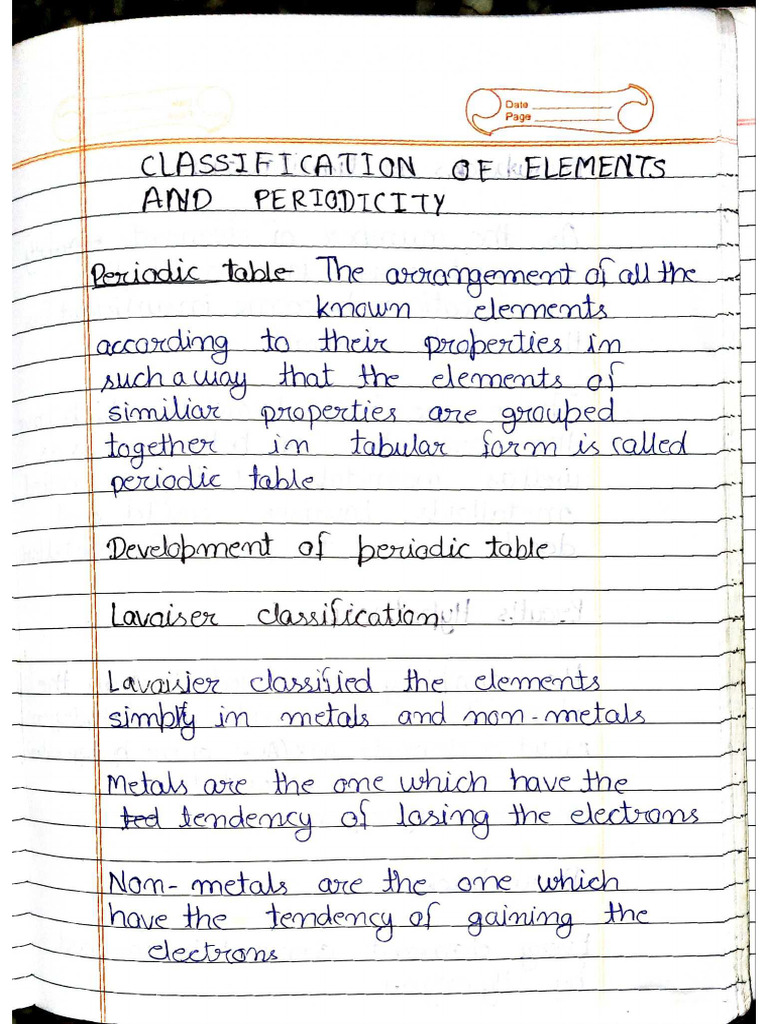 Date
Page
CLASSIFICATION OF ELEMENTS
AND PERIODICITY
Periodic table- The arrangement of all the
known elements
according to their properties in
such a way that the elements of
similiar properties are grouped
together in tabular form is called
periodic table.
Development of periodic table
Lavaiser classification
Lavaisier classified the elements
simply in metals and non-metals
Metals are the one which have the
ted tendency of losing the electrons
Non-metals are the one which
have the tendency of gaining the
electrons